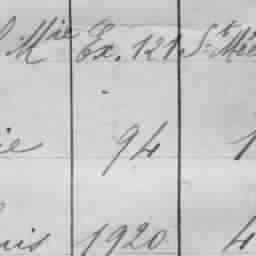 Mie Ex. 121 St Mé
ie 94 1
uis 1920 4